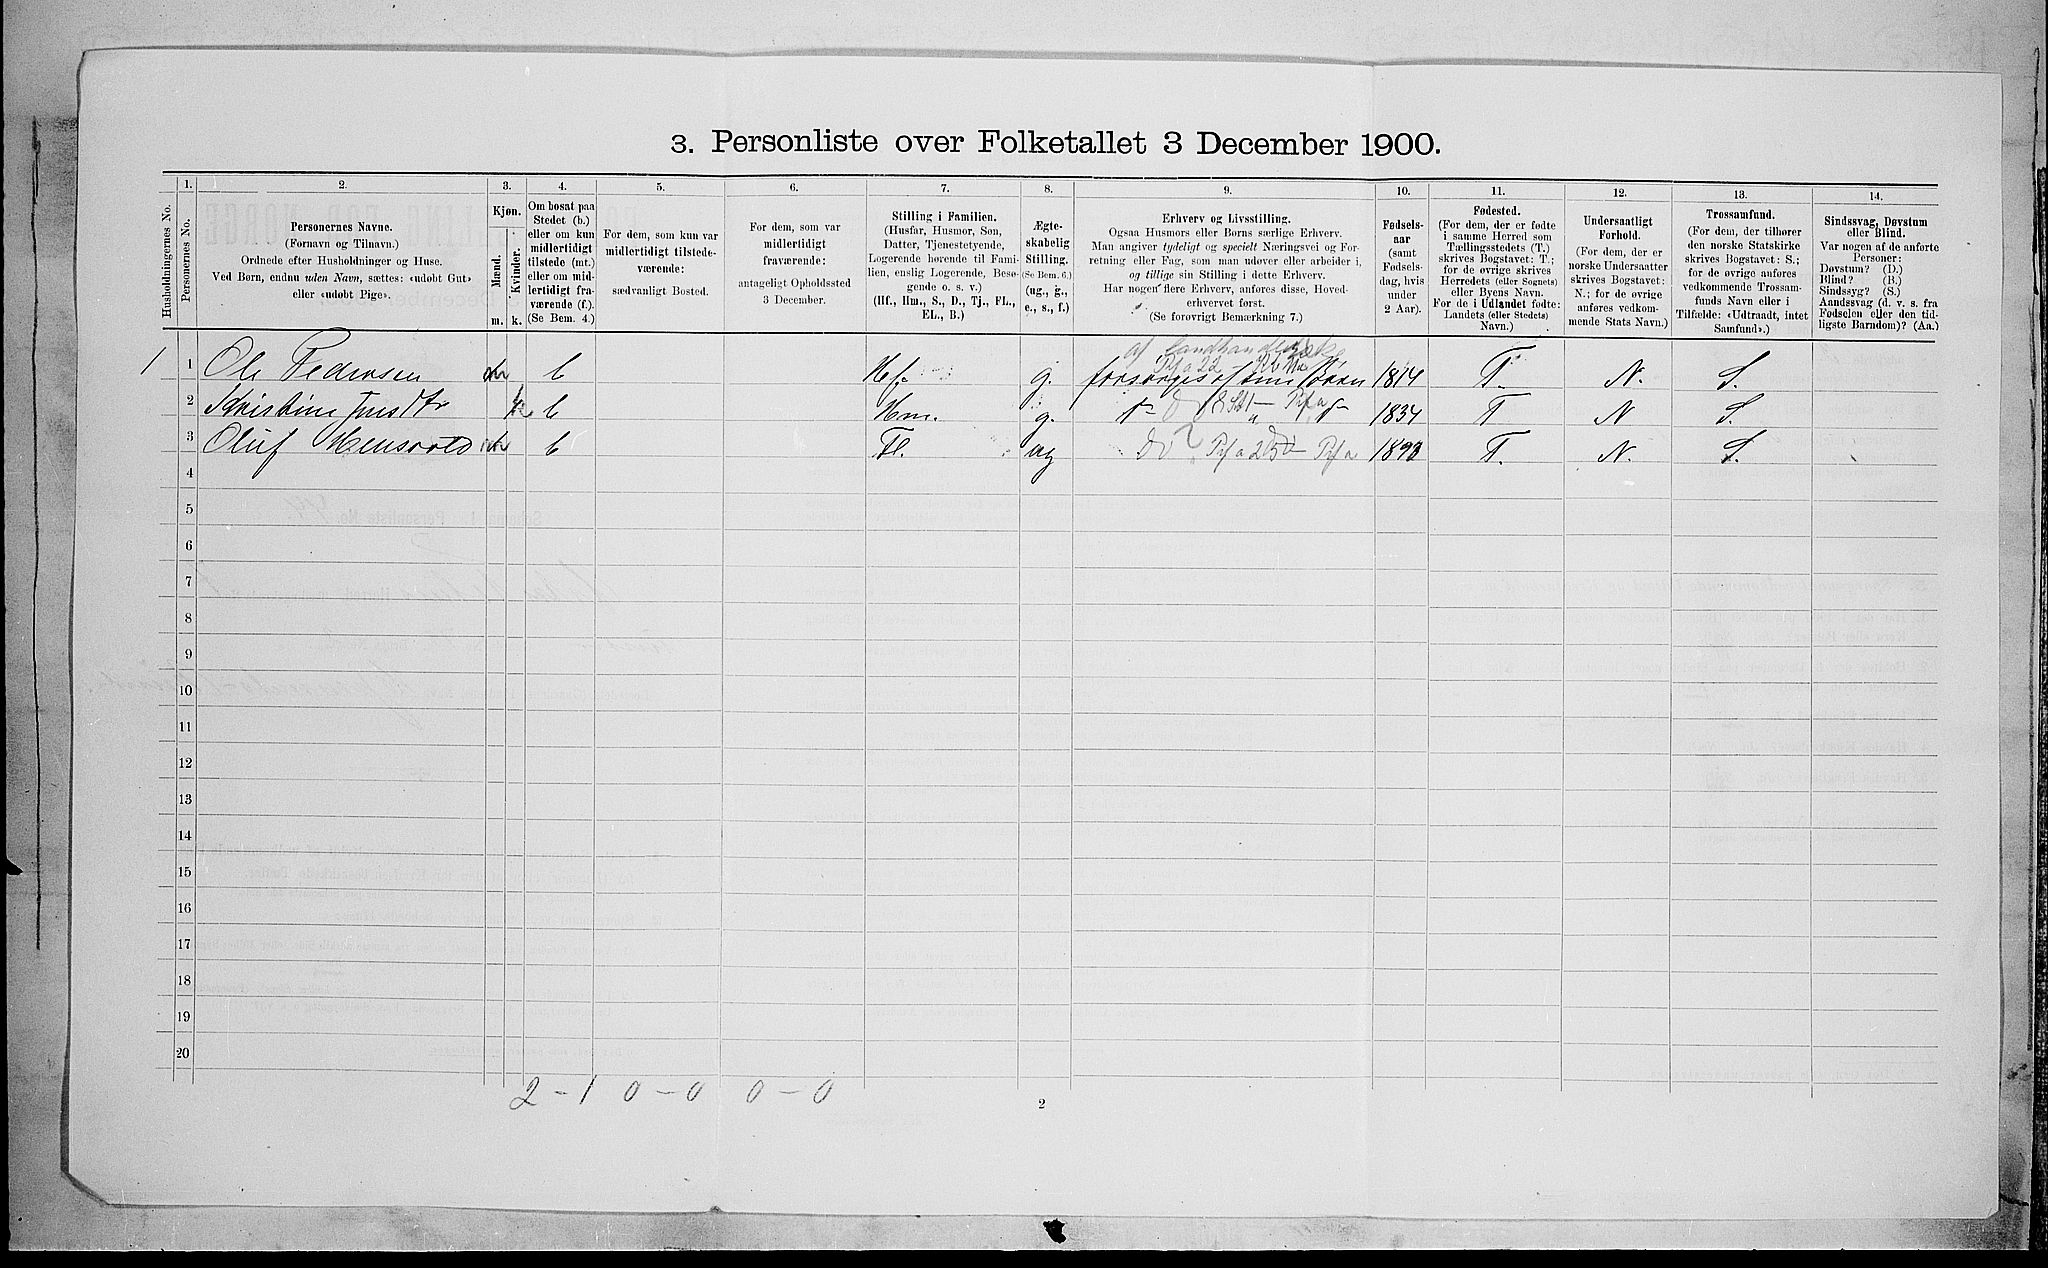 3. Personliste over Folketallet 3 December 1900.
Husholdningernes No.
1.
Personernes No.
2.
Personernes Navne.
(Fornavn og Tilnavn.)
Ordnede efter Husholdninger og Huse.
Ved Børn, endnu uden Navn, sættes: «udøbt Gut»
eller «udøbt Pige».
3.
Kjøn.
Mænd.
Kvinder.
m. k.
4.
Om bosat paa
Stedet (b.)
eller om kun
midlertidigt
tilstede (mt.)
eller om mid-
lertidigt fra-
værende (f.).
(Se Bem. 4.)
5.
For dem, som kun var
midlertidigt tilstede-
værende:
sædvanligt Bosted.
6.
For dem, som var
midlertidigt
fraværende:
antageligt Opholdssted
3 December.
7.
Stilling i Familien.
(Husfar, Husmor, Søn,
Datter, Tjenestetyende,
Logerende hørende til Fami-
lien, enslig Logerende, Besø-
gende o. s. v.)
(Hf., Hm., S., D., Tj., FL.,
EL., B.)
8.
Ægte-
skabelig
Stilling.
(Se Bem. 6.)
(ug., g.,
e., s., f.)
9.
Erhverv og Livsstilling.
Ogsaa Husmors eller Børns særlige Erhverv.
Man angiver tydeligt og specielt Næringsvei og For-
retning eller Fag, som man udøver eller arbeider i,
og tillige sin Stilling i dette Erhverv.
Har nogen flere Erhverv, anføres disse, Hoved-
erhvervet først.
(Se forøvrigt Bemærkning 7.)
10.
Fødsels-
aar
(samt
Fødsels-
dag, hvis
under
2 Aar).
11.
Fødested.
(For dem, der er fødte
i samme Herred som
Tællingsstedets (T.)
skrives Bogstavet: T.;
for de øvrige skrives
Herredets (eller Sognets)
eller Byens Navn.
For de i Udlandet fødte:
Landets (eller Stedets)
Navn.)
12.
Undersaatligt
Forhold.
(For dem, der er
norske Undersaatter
skrives Bogstavet:
N.; for de øvrige
anføres vedkom-
mende Stats Navn.)
13.
Trossamfund.
(For dem, der tilhører
den norske Statskirke
skrives Bogstavet: S.;
for de øvrige anføres
vedkommende Trossam-
funds Navn eller i
Tilfælde: «Udtraadt, intet
Samfund».)
14.
Sindssvag, Døvstum
eller Blind.
Var nogen af de anførte
Personer:
Døvstum? (D.)
Blind? (B.)
Sindssyg? (S.)
Aandssvag (d. v. s. fra
Fødselen eller den tid-
ligste Barndom)? (Aa.)
1 1 Ole Pedersen m b Hf. g. forsørges af sine Børn 1814 T. N. S.
2 Kristine k b Hm. g. 1834 T N S.
3 Oluf m b Fl. ug T. N. S.
4
5
6
7
8
9
10
11
12
13
14
15
16
17
18
19
20
2 - 1 0 - 0 0 - 0
2